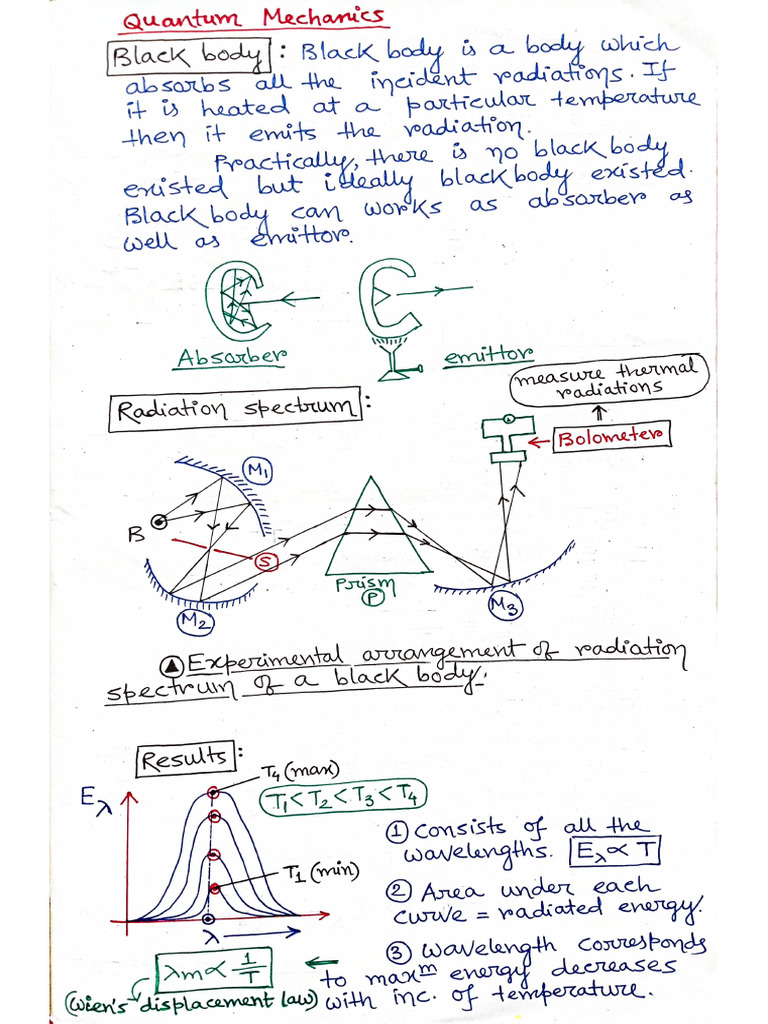 Quantum Mechanics
Black body : Black body is a body which
absorbs all the incident radiations. If
it is heated at a particular temperature
then it emits the radiation.
Practically, there is no black body
existed but ideally black body existed.
Black body can works as absorber as
well as emittor.
Absorber
emittor
measure thermal
radiations
Radiation spectrum :
Bolometer
M1
B
S
Prism
P
M2
M3
Experimental arrangement of radiation
spectrum of a black body.
Results :
T4 (max)
Eλ
T1 < T2 < T3 < T4
① Consists of all the
wavelengths. Eλ ∝ T
T1 (min)
② Area under each
curve = radiated energy.
λ
③ Wavelength corresponds
λm ∝ 1/T
to maxm energy decreases
(Wien's displacement law)
with inc. of temperature.